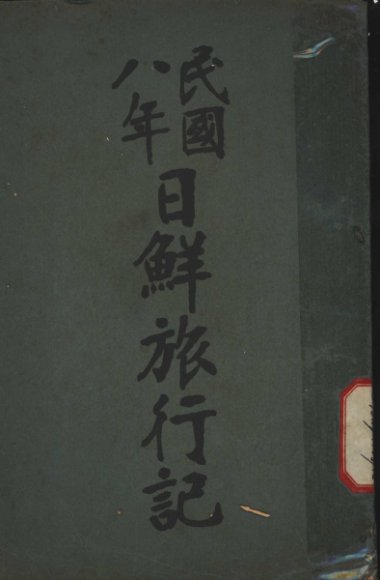 民國
八年
日鮮旅行記